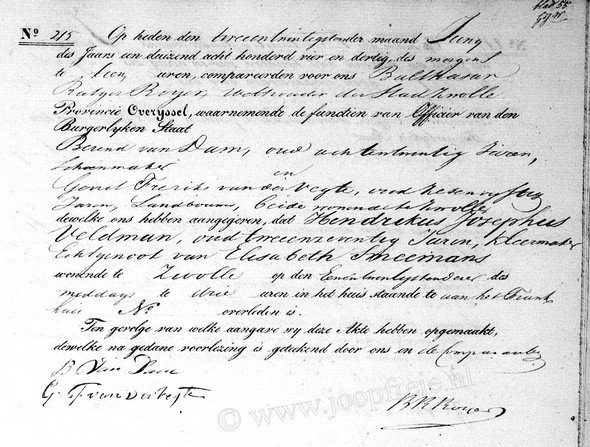 Nº 215 Op heden den twee en twintigsten der maand Juny
des Jaars een duizend acht honderd vier en dertig, des morgens
te tien uren, compareerden voor ons Balthasar
Rutger Royer, Wethouder der Stad Zwolle
Provincie Overyssel, waarnemende de functien van Officier van den
Burgerlyken Staat
Berend van Dam, oud acht en twintig Jaren,
Schoenmaker
en
Gerrit Frerik van der Vegte, oud
Jaren, Landbouwer, beide wonende te Zwolle
dewelke ons hebben aangegeven, dat Hendrikus Josephus
Veldman, oud twee en zeventig Jaren, kleermaker
Echtgenoot van Elisabeth Smeemans
wonende te Zwolle op den Een en twintigsten dezer des
middags te drie uren in het huis staande te aan het
huis Nº overleden is.
Ten gevolge van welke aangave wy deze Akte hebben opgemaakt,
dewelke na gedane voorlezing is geteekend door ons en de Comparanten
B Van Dam
G. F van der Vegte
B R Royer
© www.joopfreie.nl